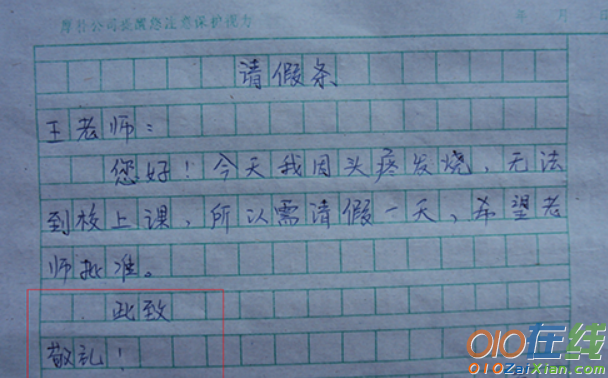 厚朴公司提醒您注意保护视力
年 月 日
请假条
王老师：
您好！今天我因头疼发烧，无法
到校上课，所以需请假一天，希望老
师批准。
此致
敬礼！
010在线
010ZaiXian.com